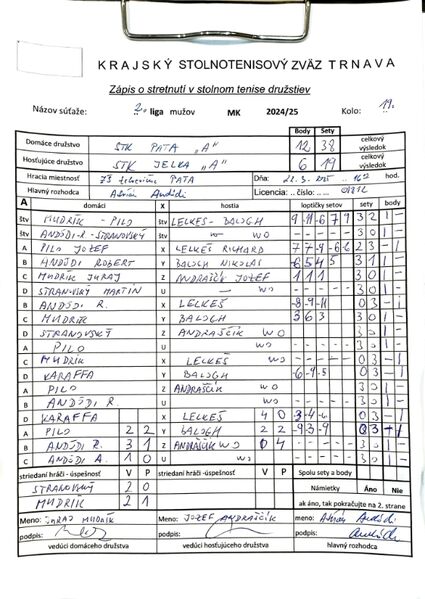 KRAJSKÝ STOLNOTENISOVÝ ZVÄZ TRNAVA
Zápis o stretnutí v stolnom tenise družstiev
Názov súťaže: 2. liga mužov MK 2024/25 Kolo: 19.
Body Sety
Domáce družstvo STK PATA „A" 12 38 celkový výsledok
Hosťujúce družstvo STK JELKA „A" 6 19 celkový výsledok
Hracia miestnosť PATA Dňa: hod.
Hlavný rozhodca Licencia: .. číslo:
A domáci X hostia loptičky setov sety body
štv MUDRÍK - PILO X LELKES - BALOGH 9 -11 -6 7 9 3 2 1 -
štv ANDÓDI R. - STRANOVSKÝ Y — WO - - - - - 3 0 1 -
A PILO JOZEF X LELKEŠ RICHARD 2 3 - 1
B ANDÓDI ROBERT Y BALOGH NIKOLAS 3 1 1 -
C MUDRÍK JURAJ Z ANDRAŠČÍK JOZEF 1 1 1 3 0 1 -
D STRANOVSKÝ MARTIN U — WO - - - - - 3 0 1 -
B ANDÓDI R. X LELKEŠ -8 -9 -11 0 3 - 1
C MUDRÍK Y BALOGH 3 6 3 3 0 1 -
D STRANOVSKÝ Z ANDRAŠČÍK WO - - - - - 3 0 1 -
A PILO U WO - - - - - 3 0 1 -
C MUDRÍK X LELKEŠ WO - - - - - 0 3 - 1
D KARAFFA Y BALOGH -6 -9 -5 0 3 - 1
A PILO Z ANDRAŠČÍK WO - - - - - 3 0 1 -
B ANDÓDI R. U WO - - - - - 3 0 1 -
D KARAFFA X LELKEŠ 4 0 -3 -4 -6 0 3 - 1
A PILO 2 2 Y BALOGH 2 2 -9 -3 -9 0 3 - 1
B ANDÓDI R. 3 1 Z ANDRAŠČÍK WO 0 4 - - - - - 3 0 1 -
C ANDÓDI A. 1 0 U WO - - - - - 3 0 1 -
striedaní hráči - úspešnosť V P striedaní hráči - úspešnosť V P Spolu sety a body
STRANOVSKÝ 2 0 Námietky Áno Nie
MUDRÍK 2 1 ak áno, tak pokračujte na 2. strane
Meno: JURAJ MUDRÍK Meno: JOZEF ANDRAŠČÍK Meno:
podpis: podpis: podpis:
vedúci domáceho družstva vedúci hosťujúceho družstva hlavný rozhodca